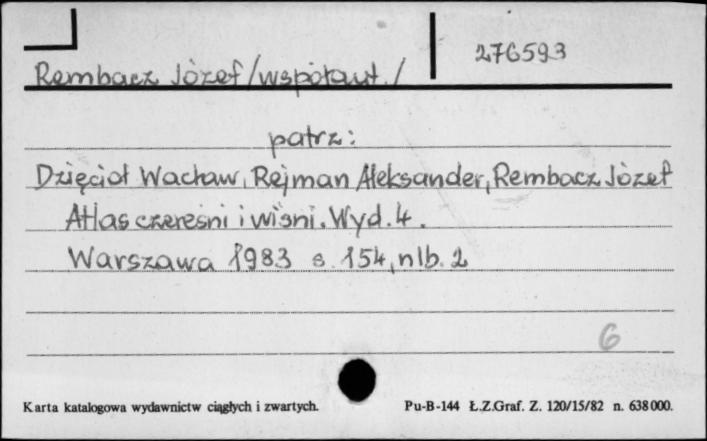 276593
Rembacz Józef /współaut./
patrz:
Dzięcioł Wacław, Rejman Aleksander, Rembacz Józef
Atlas czereśni i wiśni. Wyd. 4.
Warszawa 1983 s. 154, nlb. 2
6
Karta katalogowa wydawnictw ciągłych i zwartych. Pu-B-144 Ł.Z.Graf. Z. 120/15/82 n. 638000.